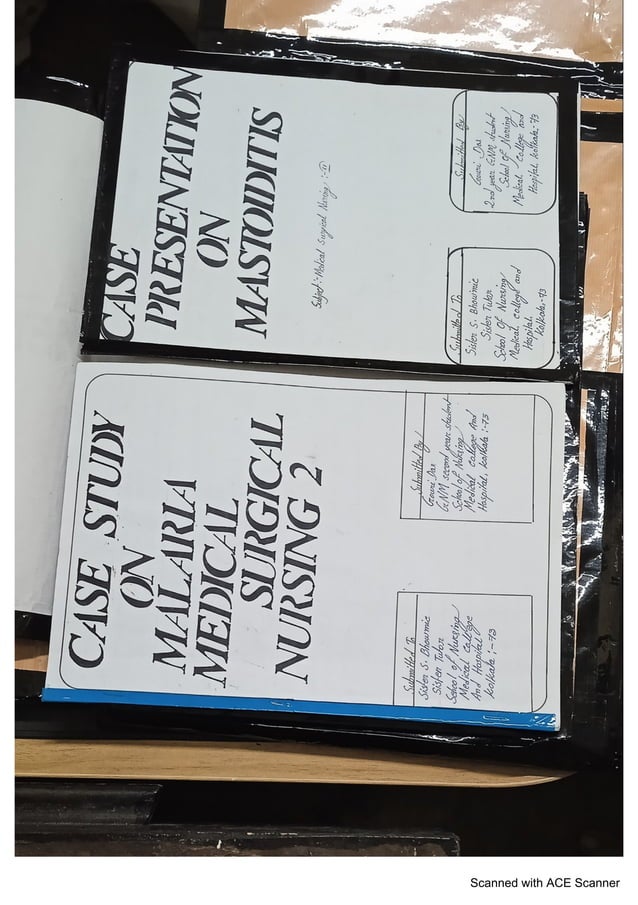 CASE
PRESENTATION
ON
MASTOIDITIS
Subject:- Medical Surgical Nursing :-II
Submitted To
Sister S. Bhowmic
Sister Tutor
School of Nursing
Medical college and
Hospital,
Kolkata-73
Submitted By
Gouri Das
2nd year GNM student
School of Nursing
Medical College and
Hospital, Kolkata:-73
CASE STUDY
ON
MALARIA
MEDICAL
SURGICAL
NURSING 2
Submitted To
Sister S. Bhowmic
Sister Tutor
School of Nursing
Medical college
And Hospital
Kolkata :-73
Submitted By
Gouri Das
GNM second year student
School of Nursing
Medical college And
Hospital, Kolkata :-73
Scanned with ACE Scanner